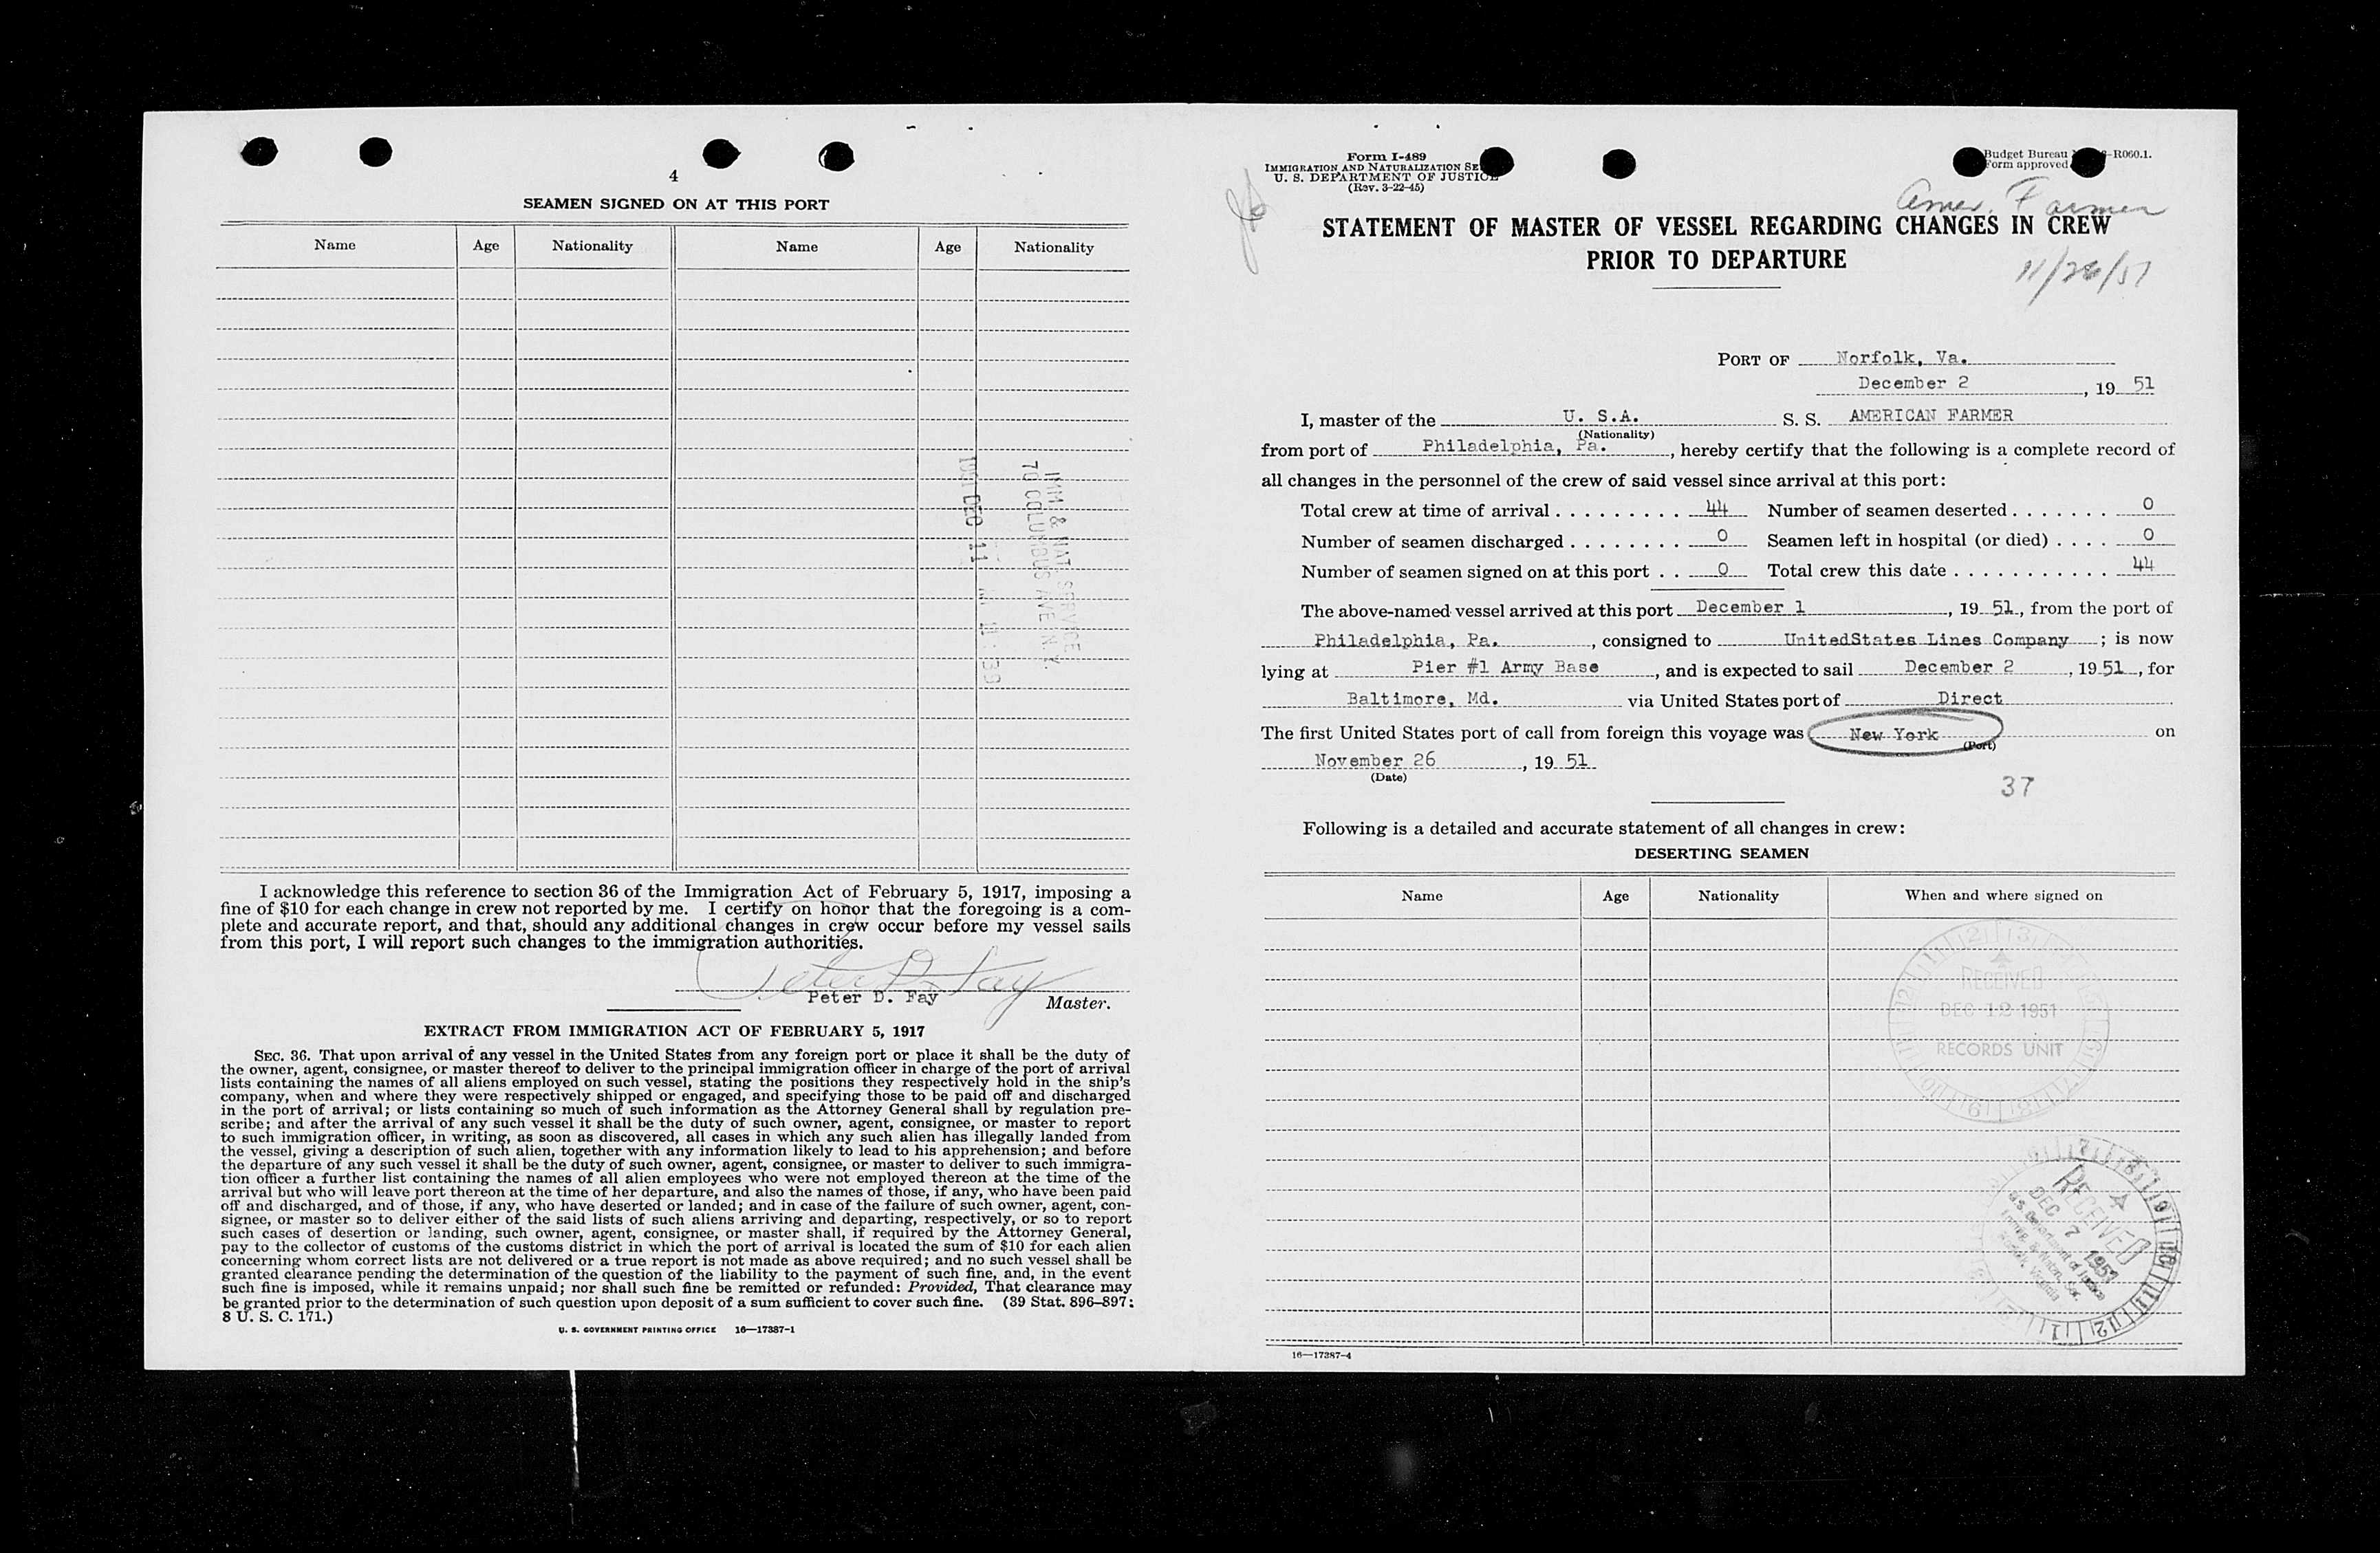 4
SEAMEN SIGNED ON AT THIS PORT
Name Age Nationality Name Age Nationality
IMM & NAT SERVICE
70 COLUMBUS AVE N.Y.
1951 DEC 11
I acknowledge this reference to section 36 of the Immigration Act of February 5, 1917, imposing a
fine of $10 for each change in crew not reported by me. I certify on honor that the foregoing is a com-
plete and accurate report, and that, should any additional changes in crew occur before my vessel sails
from this port, I will report such changes to the immigration authorities.
Peter D. Fay
Peter D. Fay
Master.
EXTRACT FROM IMMIGRATION ACT OF FEBRUARY 5, 1917
SEC. 36. That upon arrival of any vessel in the United States from any foreign port or place it shall be the duty of
the owner, agent, consignee, or master thereof to deliver to the principal immigration officer in charge of the port of arrival
lists containing the names of all aliens employed on such vessel, stating the positions they respectively hold in the ship's
company, when and where they were respectively shipped or engaged, and specifying those to be paid off and discharged
in the port of arrival; or lists containing so much of such information as the Attorney General shall by regulation pre-
scribe; and after the arrival of any such vessel it shall be the duty of such owner, agent, consignee, or master to report
to such immigration officer, in writing, as soon as discovered, all cases in which any such alien has illegally landed from
the vessel, giving a description of such alien, together with any information likely to lead to his apprehension; and before
the departure of any such vessel it shall be the duty of such owner, agent, consignee, or master to deliver to such immigra-
tion officer a further list containing the names of all alien employees who were not employed thereon at the time of the
arrival but who will leave port thereon at the time of her departure, and also the names of those, if any, who have been paid
off and discharged, and of those, if any, who have deserted or landed; and in case of the failure of such owner, agent, con-
signee, or master so to deliver either of the said lists of such aliens arriving and departing, respectively, or so to report
such cases of desertion or landing, such owner, agent, consignee, or master shall, if required by the Attorney General,
pay to the collector of customs of the customs district in which the port of arrival is located the sum of $10 for each alien
concerning whom correct lists are not delivered or a true report is not made as above required; and no such vessel shall be
granted clearance pending the determination of the question of the liability to the payment of such fine, and, in the event
such fine is imposed, while it remains unpaid; nor shall such fine be remitted or refunded: Provided, That clearance may
be granted prior to the determination of such question upon deposit of a sum sufficient to cover such fine. (39 Stat. 896–897;
8 U. S. C. 171.)
U. S. GOVERNMENT PRINTING OFFICE 16—17387-1
Form I-489
IMMIGRATION AND NATURALIZATION SE
U. S. DEPARTMENT OF JUSTICE
(Rev. 3-22-45)
Budget Bureau -R060.1.
Form approved
Amer. Farmer
STATEMENT OF MASTER OF VESSEL REGARDING CHANGES IN CREW
PRIOR TO DEPARTURE
11/26/51
PORT OF Norfolk, Va.
December 2, 19 51
I, master of the U. S.A. S. S. AMERICAN FARMER
(Nationality)
from port of Philadelphia, Pa., hereby certify that the following is a complete record of
all changes in the personnel of the crew of said vessel since arrival at this port:
Total crew at time of arrival . . . . . . . . . 44 Number of seamen deserted . . . . . . . 0
Number of seamen discharged . . . . . . . . 0 Seamen left in hospital (or died) . . . . 0
Number of seamen signed on at this port . . 0 Total crew this date . . . . . . . . . . . . 44
The above-named vessel arrived at this port December 1, 19 51, from the port of
Philadelphia, Pa., consigned to UnitedStates Lines Company; is now
lying at Pier #1 Army Base, and is expected to sail December 2, 19 51, for
Baltimore, Md. via United States port of Direct.
The first United States port of call from foreign this voyage was New York on
(Port)
November 26, 19 51
(Date)
37
Following is a detailed and accurate statement of all changes in crew:
DESERTING SEAMEN
Name Age Nationality When and where signed on
RECEIVED
DEC 12 1951
RECORDS UNIT
RECEIVED
DEC 7 1951
U.S. Department of Justice
16—17387-4